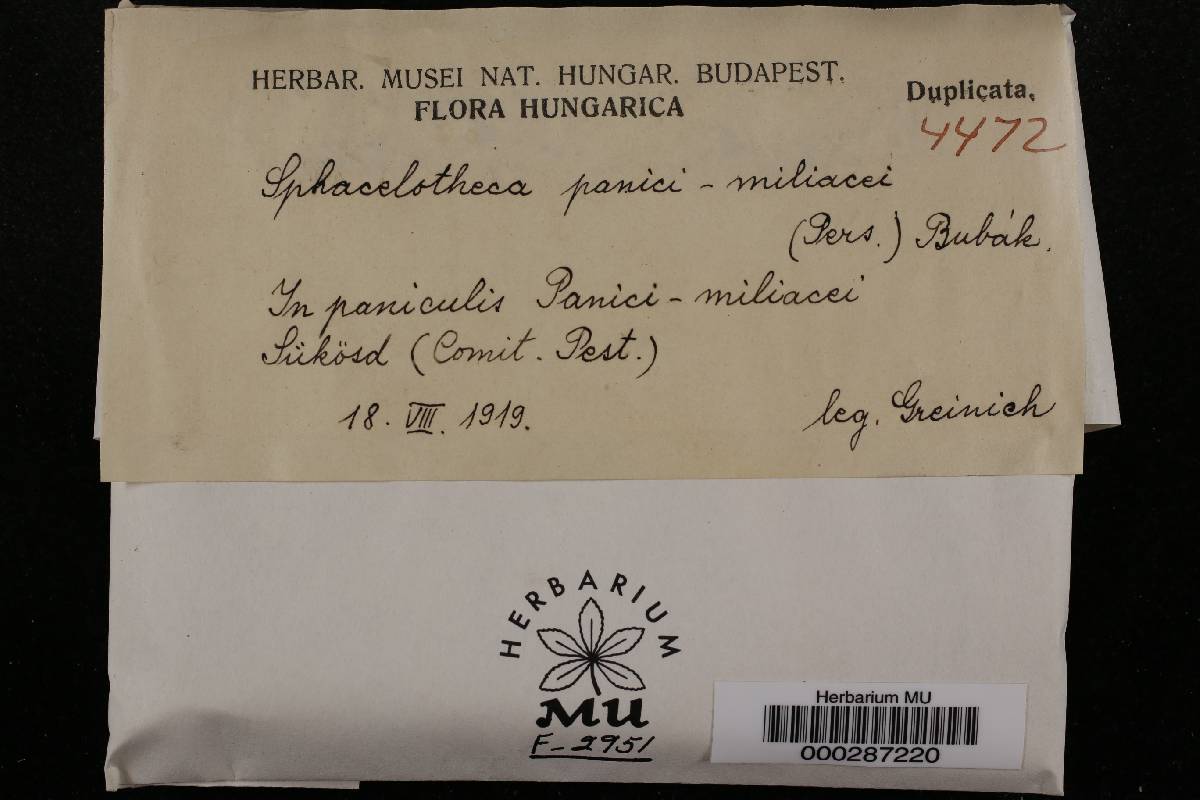 HERBAR. MUSEI NAT. HUNGAR. BUDAPEST.
FLORA HUNGARICA
Duplicata.
4472
Sphacelotheca panici - miliacei
(Pers.) Bubák.
In paniculis Panici - miliacei
Sükösd (Comit. Pest.)
18. VIII. 1919.
leg. Greinich
HERBARIUM
MU
F-2951
Herbarium MU
000287220